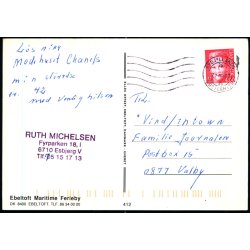 Løs nin
Modehuset Chanels
min størrelse
er. 42
med venlig hilsen
RUTH MICHELSEN
Fyrparken 18, I
6710 Esbjerg V
Tlf. 05 15 17 13
Ebeltoft Maritime Ferieby
DK 8400 EBELTOFT
Til.
Vind/Intown
Familie Journalen
Postbox 15
0877 Valby
413